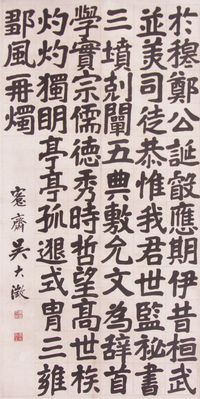 於穆鄭公誕叡應期伊昔桓武
並美司徒恭惟我君世監祕書
三墳剋闡五典敷允文為辭首
學實宗儒德秀時哲望高世族
灼灼獨明亭亭孤邈式冑三雍
鄒風再燭
愙齋吳大澂